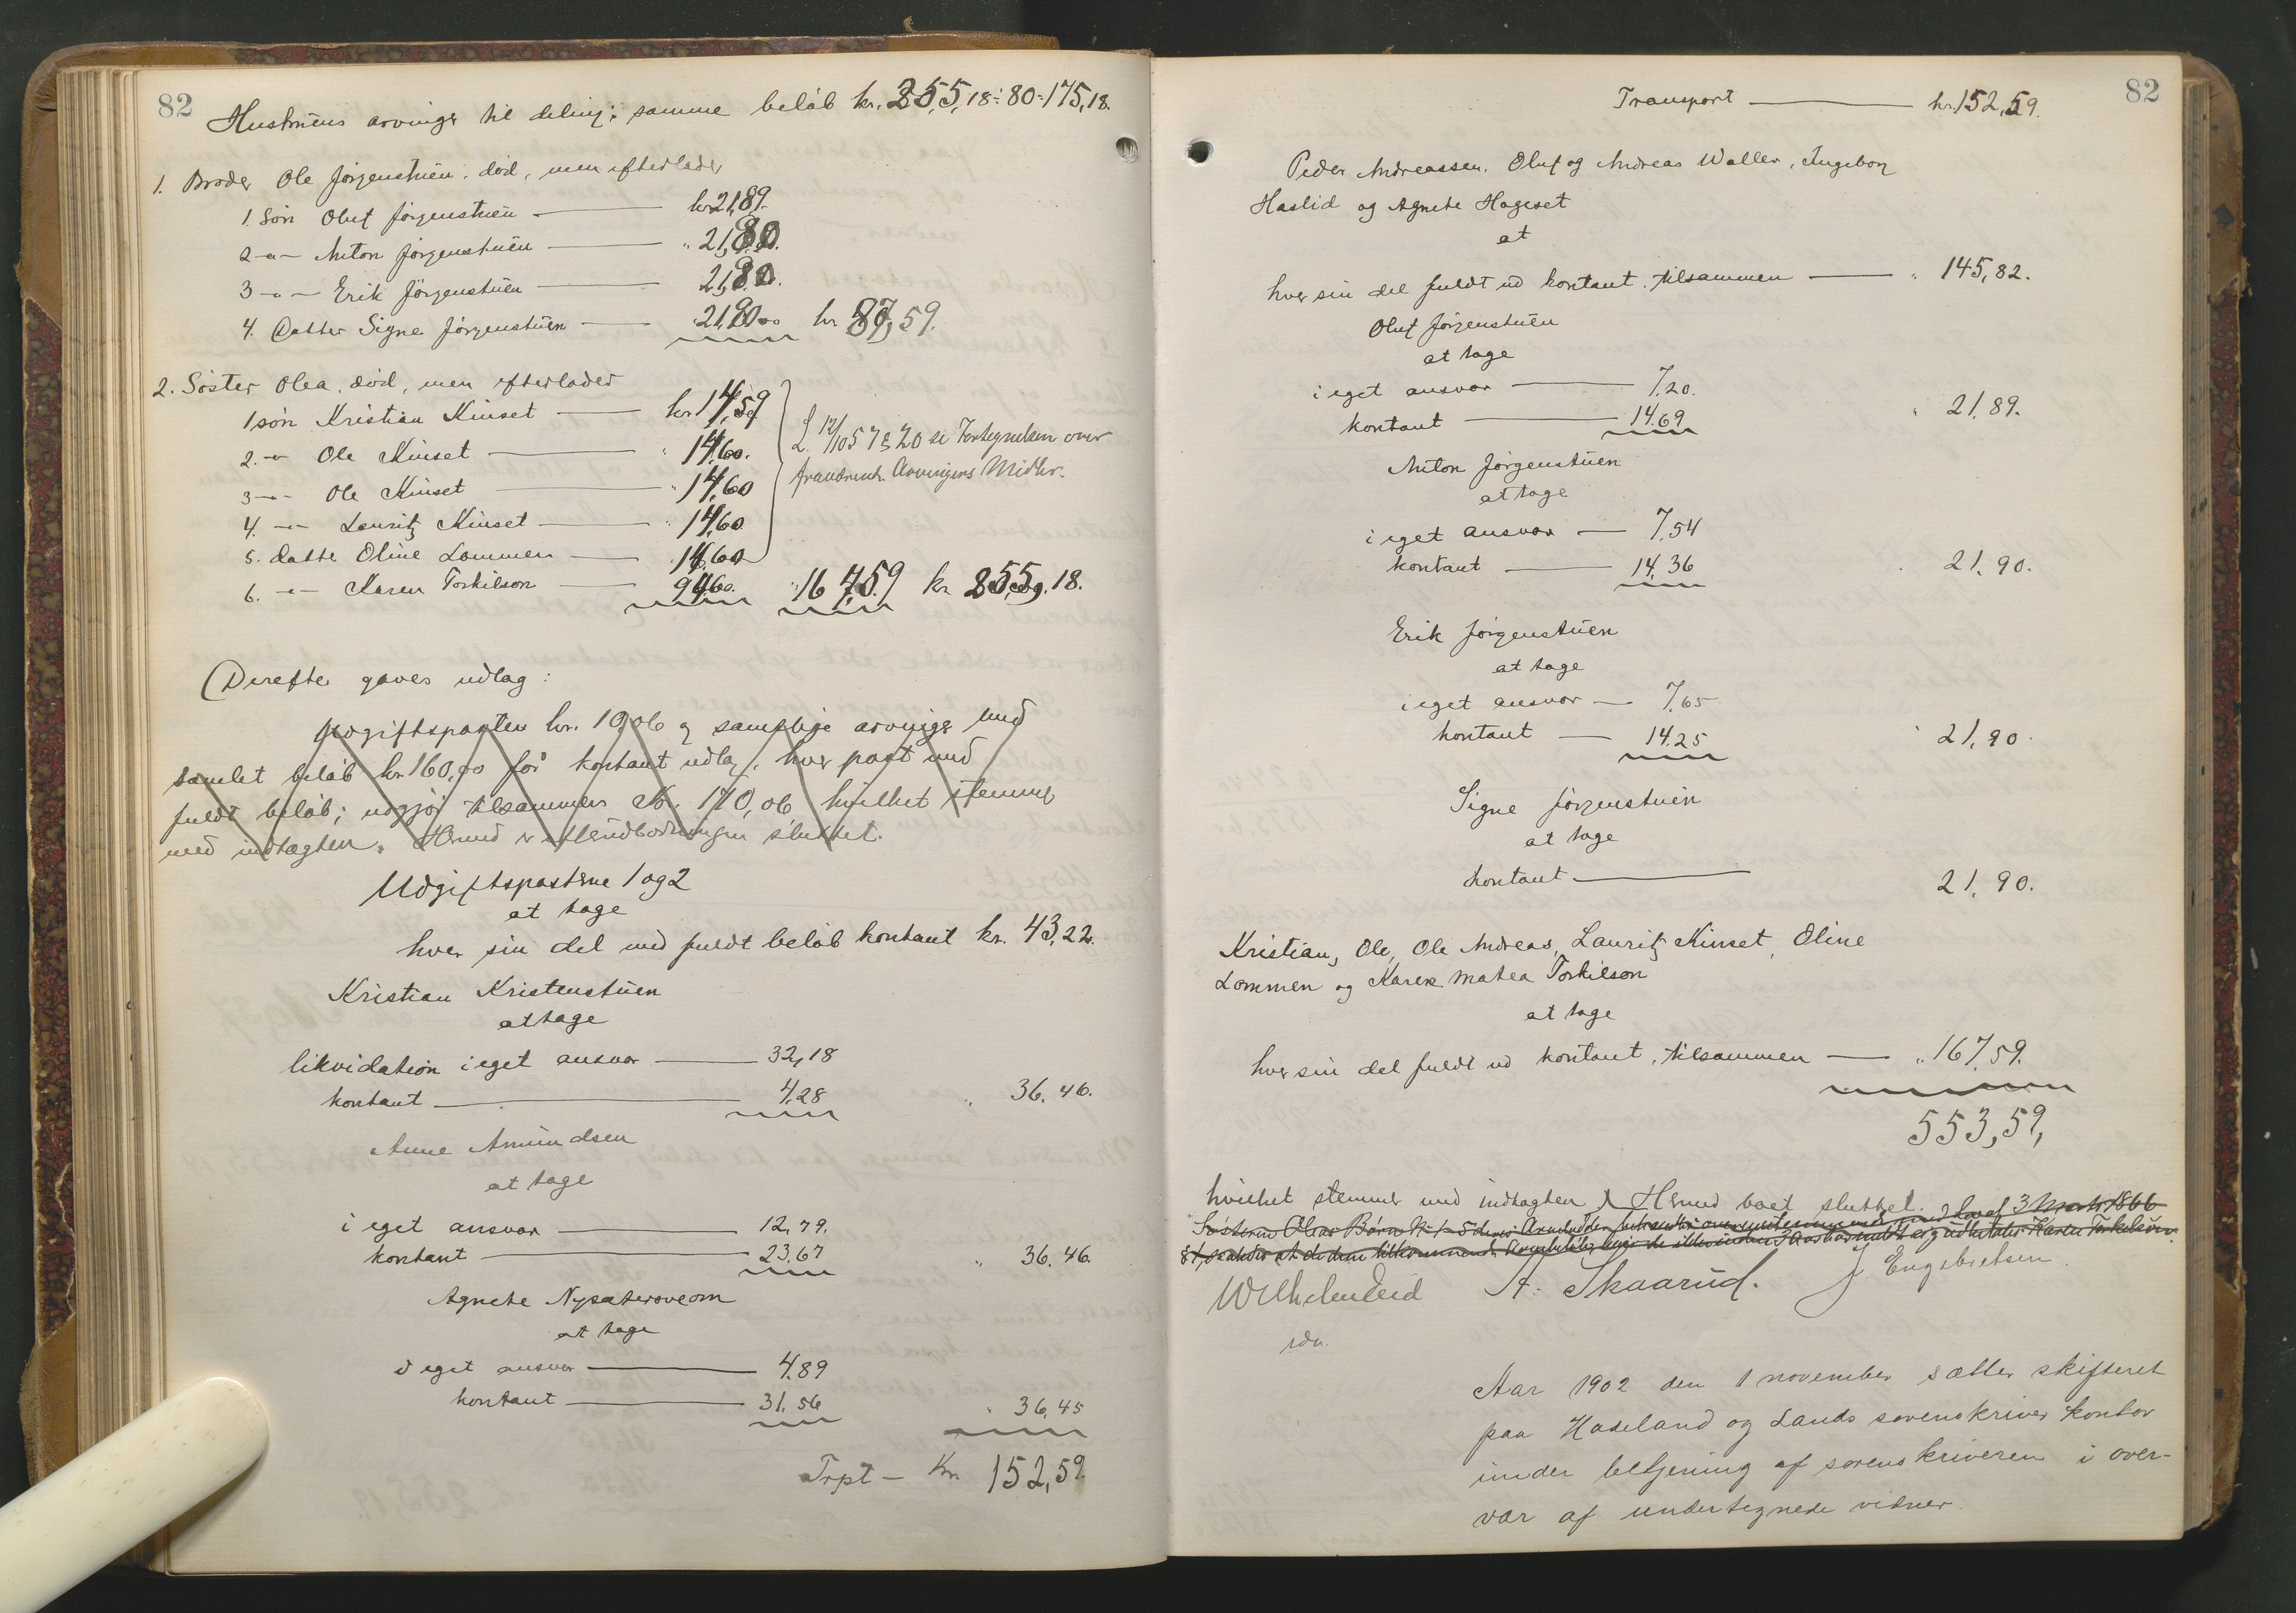 82
Hustruens arvinger til deling: samme beløb kr. 255,18 ÷ 80 = 175,18.
1. Broder Ole Jørgenstuen, død, men efterlader
1. Søn Oluf Jørgenstuen — kr. 21,89.
2 -"- Anton Jørgenstuen — " 21,90.
3 -"- Erik Jørgenstuen — 21,90.
4. Datter Signe Jørgenstuen — 21,90 kr 87,59.
2. Søster Olea, død, men efterlader
1 søn Kristian Kinset — kr 14,59
2. -"- Ole Kinset — " 14,60.
3 -"- Ole Kinset — " 14,60
4. -"- Lauritz Kinset — " 14,60
5. datte Oline Lommen — 14,60
6. -"- Karen Torkilson — 94,60. " 167,59 kr 255,18.
L. 12/10 57 § 20 se Fortegnelsen over
fraværende Arvingers Midler.
Derefter gaves udlag:
Udgiftsposten kr. 10,06 og samtlige arvinge med
samlet beløb kr. 160,00 for kontant udlag, hver post med
fuldt beløb; udgjør tilsammen Kr. 170,06 hvilket stemmer
med indtægten. Hermed er sluttet.
Udgiftsposterne 1 og 2
at tage
hver sin del med fuldt beløb kontant kr. 43,22.
Kristian Kristenstuen
at tage
likvidation i eget ansvar — 32,18
kontant — 4,28 " 36,46.
Anne Amundsen
at tage
i eget ansvar — 12,79.
kontant — 23.67 " 36,46.
Agnete Nysæterøveom
at tage
i eget ansvar — 4.89
kontant — 31,56 " 36,45
Trpt — Kr. 152,59
82
Transport — kr. 152,59.
Peder Andreassen, Oluf og Andreas Waller, Ingeborg
Haslid og Agnete Hageset
at
hver sin del fuldt ud kontant, tilsammen — " 145,82.
Oluf Jørgenstuen
at tage
i eget ansvar — 7,20.
kontant — 14.69 " 21,89.
Anton Jørgenstuen
at tage
i eget ansvar — 7,54
kontant — 14,36 " 21,90.
Erik Jørgenstuen
at tage
i eget ansvar — 7,65
kontant — 14.25 " 21,90.
Signe Jørgenstuen
at tage
kontant — 21,90.
Kristian, Ole, Ole Andreas, Lauritz Kinset, Oline
Lommen og Karen Matea Torkilson
at tage
hver sin del fuldt ud kontant, tilsammen — " 167,59.
553,59,
hvilket stemmer med indtægten. Hermed boet sluttet.
Søsteren Oleas Børn No 1-5 deres Arvelodder lov af 3 Marts 1866
Karen Torkilson
Wilhelm Lied A. Skaarud. J Engebretsen
Aar 1902 den 1 november sattes skifteret
paa Hadeland og Lands sorenskriver kontor
under betjening af sorenskriveren i over-
vær af undertegnede vidner.